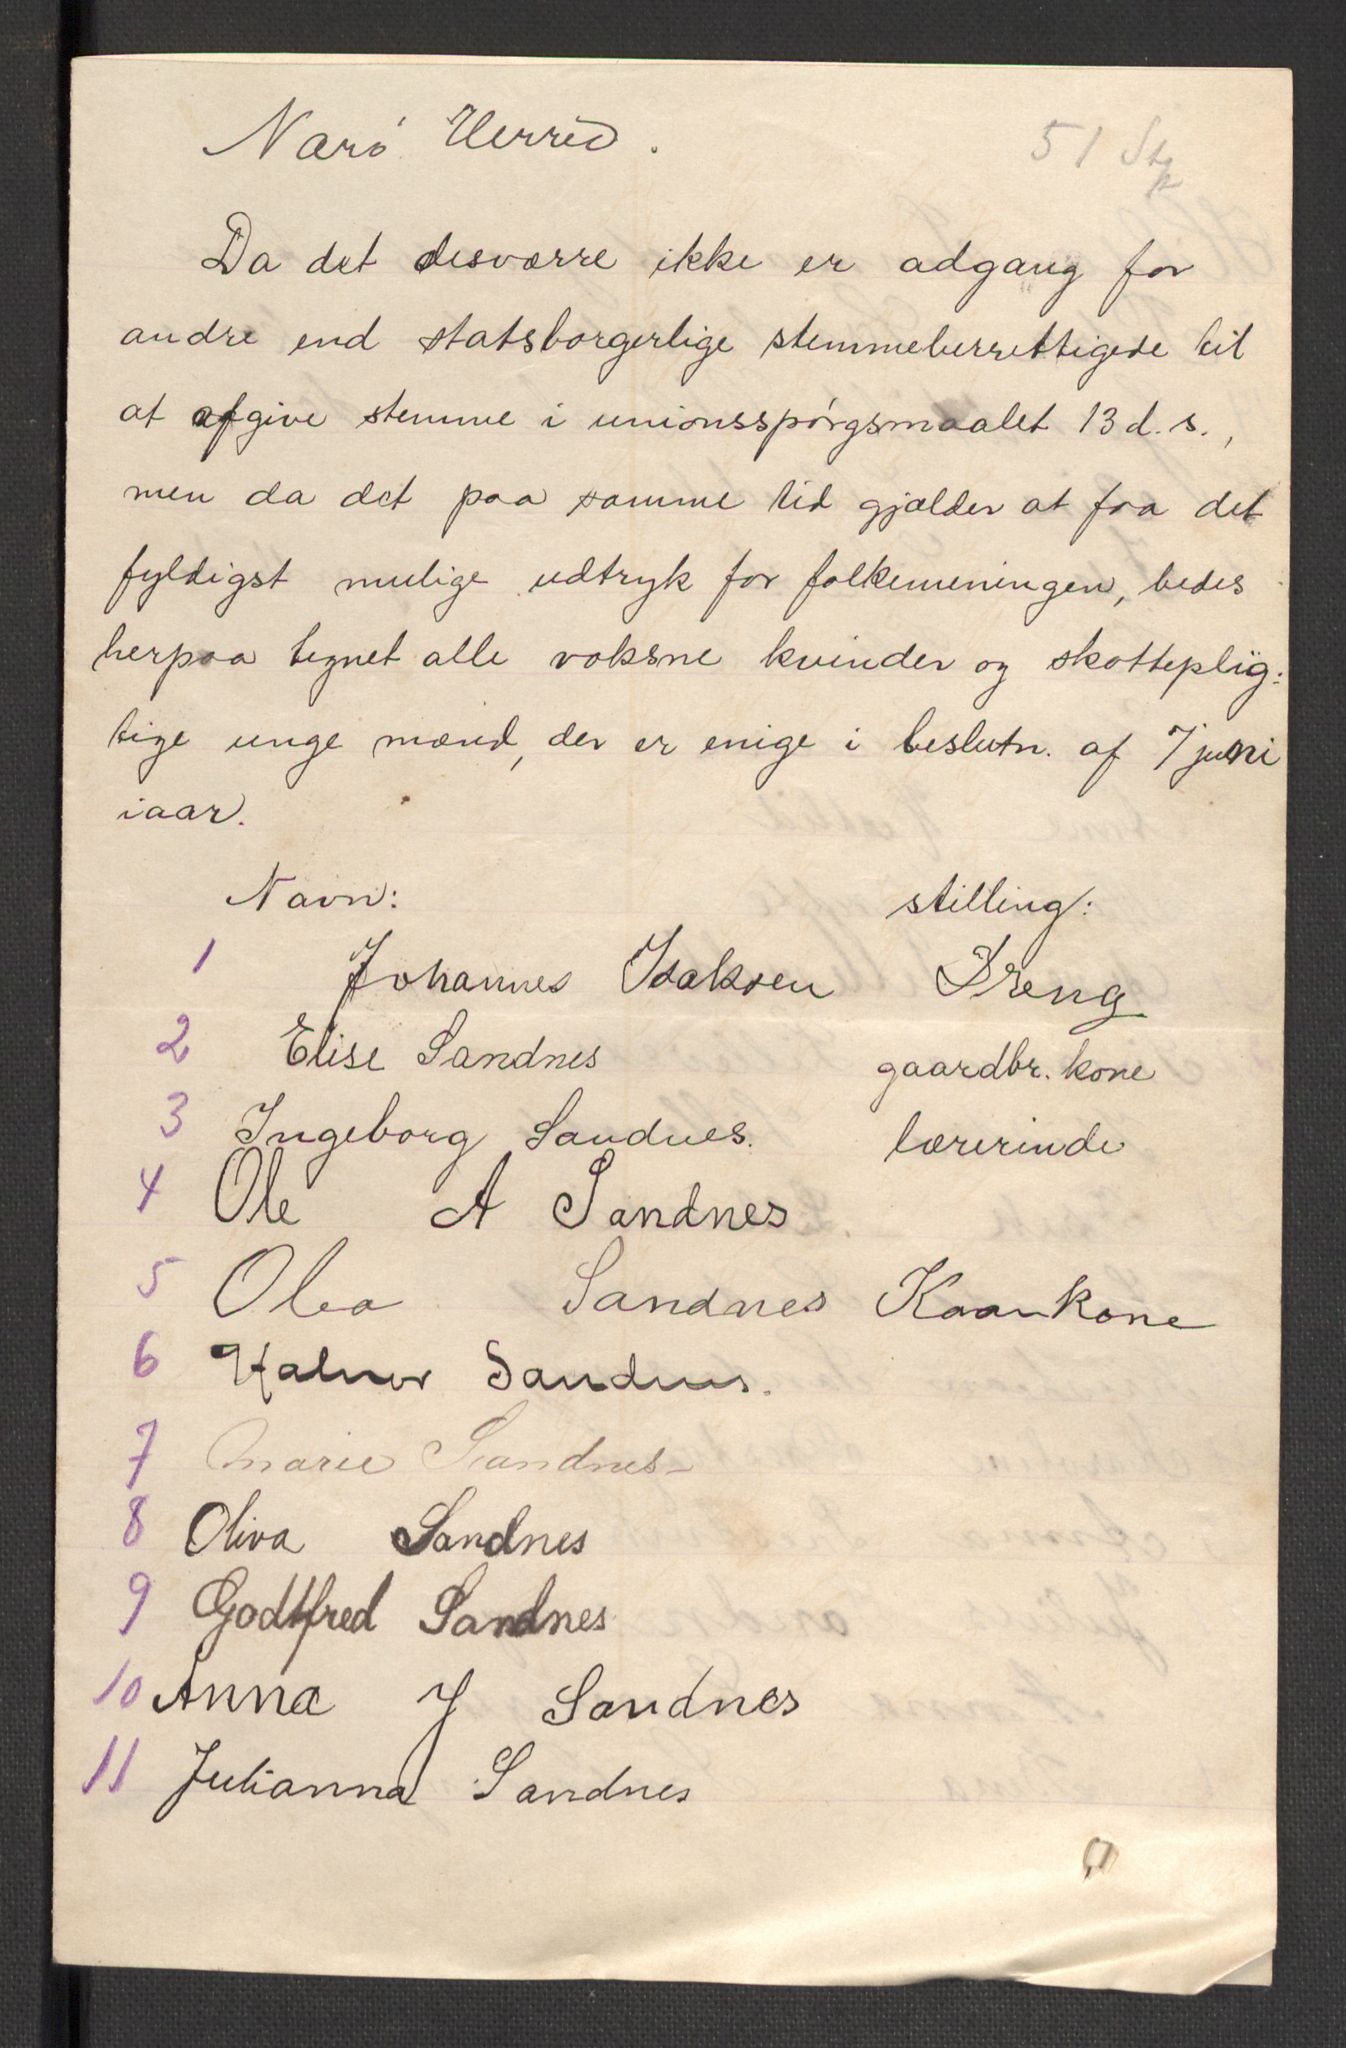 Narö Herred.
51 Stk
Da det desværre ikke er adgang for
andre end statsborgerlige stemmeberrettigede til
at afgive stemme i unionsspörgsmaalet 13 d. s.,
men da det paa samme tid gjælder at faa det
fyldigst mulige udtryk for folkemeningen, bedes
herpaa tegnet alle voksne kvinder og skatteplig:
tige unge mænd, der er enige i beslutn. af 7 juni
iaar.
Navn: stilling:
1 Johannes Isaksen Dreng
2 Elise Sandnes gaardbr. kone
3 Ingeborg Sandnes. lærerinde
4 Ole A Sandnes
5 Olea Sandnes Kaarkone
6 Halvor Sandnes.
7 Marie Sandnes
8 Oliva Sandnes
9 Godtfred Sandnes
10 Anna J Sandnes
11 Julianna Sandnes